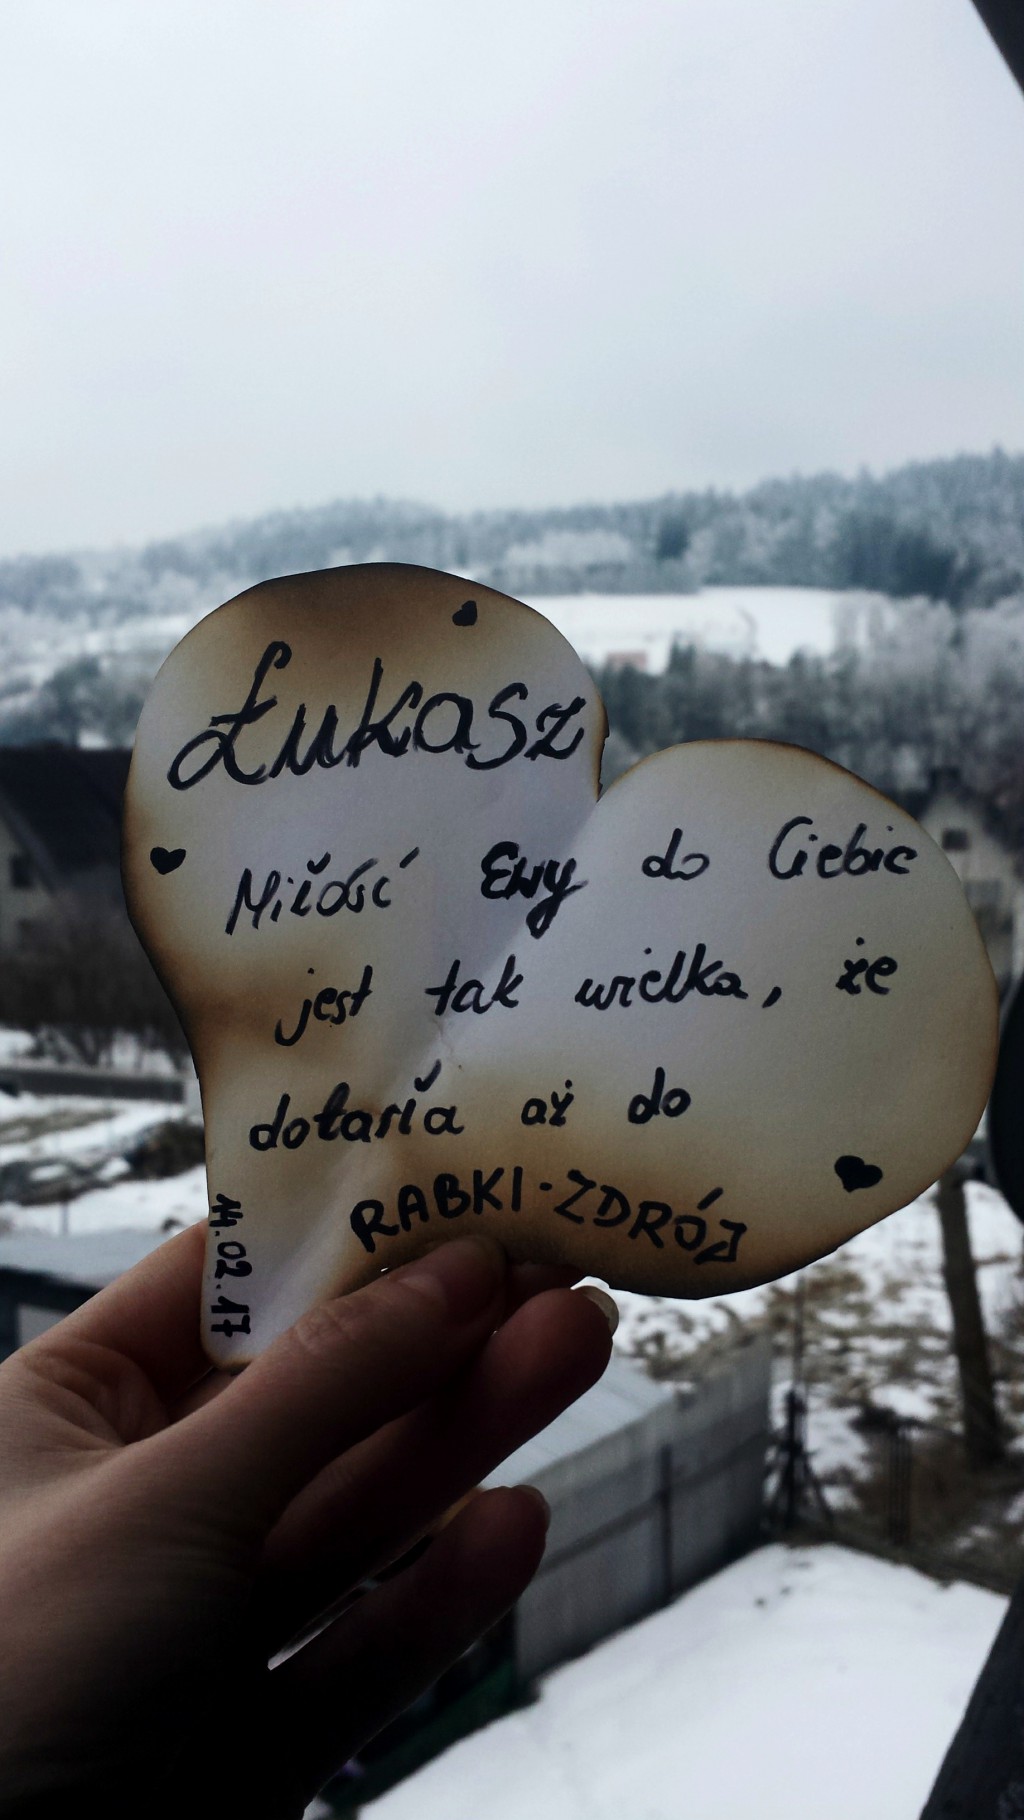 Łukasz
Miłość Ewy do Ciebie
jest tak wielka, że
dotarła aż do
RABKI-ZDRÓJ
14.02.17